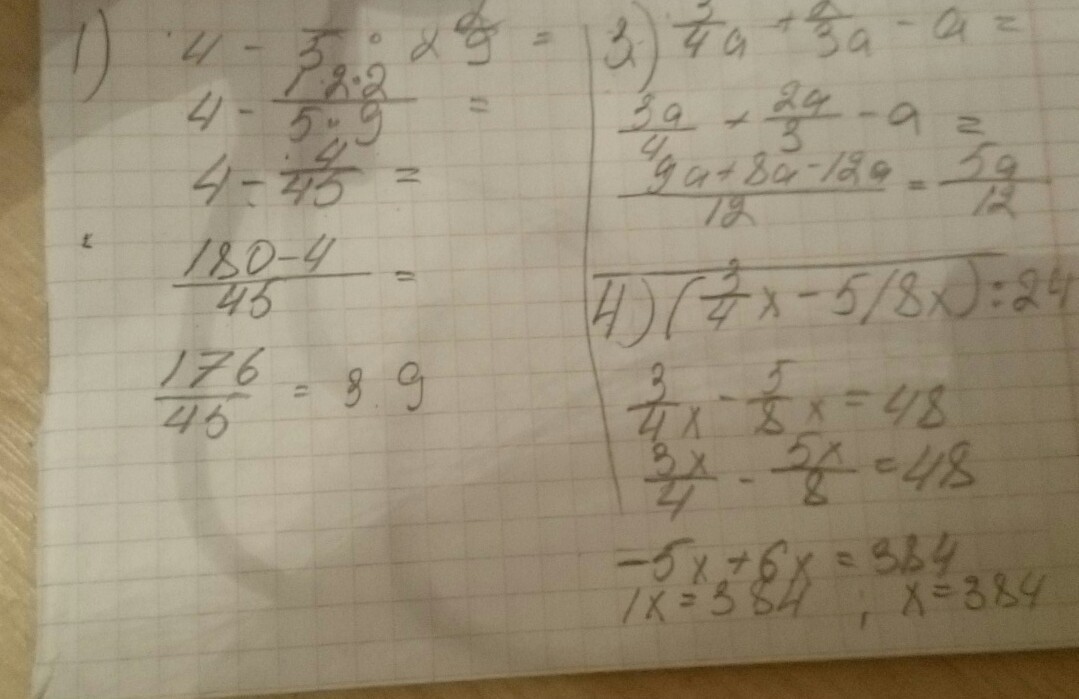 1) 4 - 1/5 · 2 2/9 =
4 - 1·2·2/5·9 =
4 - 4/45 =
180-4/45 =
176/45 = 3 9
3) 3/4 a + 2/3 a - a =
3a/4 + 2a/3 - a =
9a+8a-12a/12 = 5a/12
4) (3/4 x - 5/8x) : 24
3/4 x - 5/8 x = 48
3x/4 - 5x/8 = 48
-5x+6x = 384
1x = 384 ; x = 384